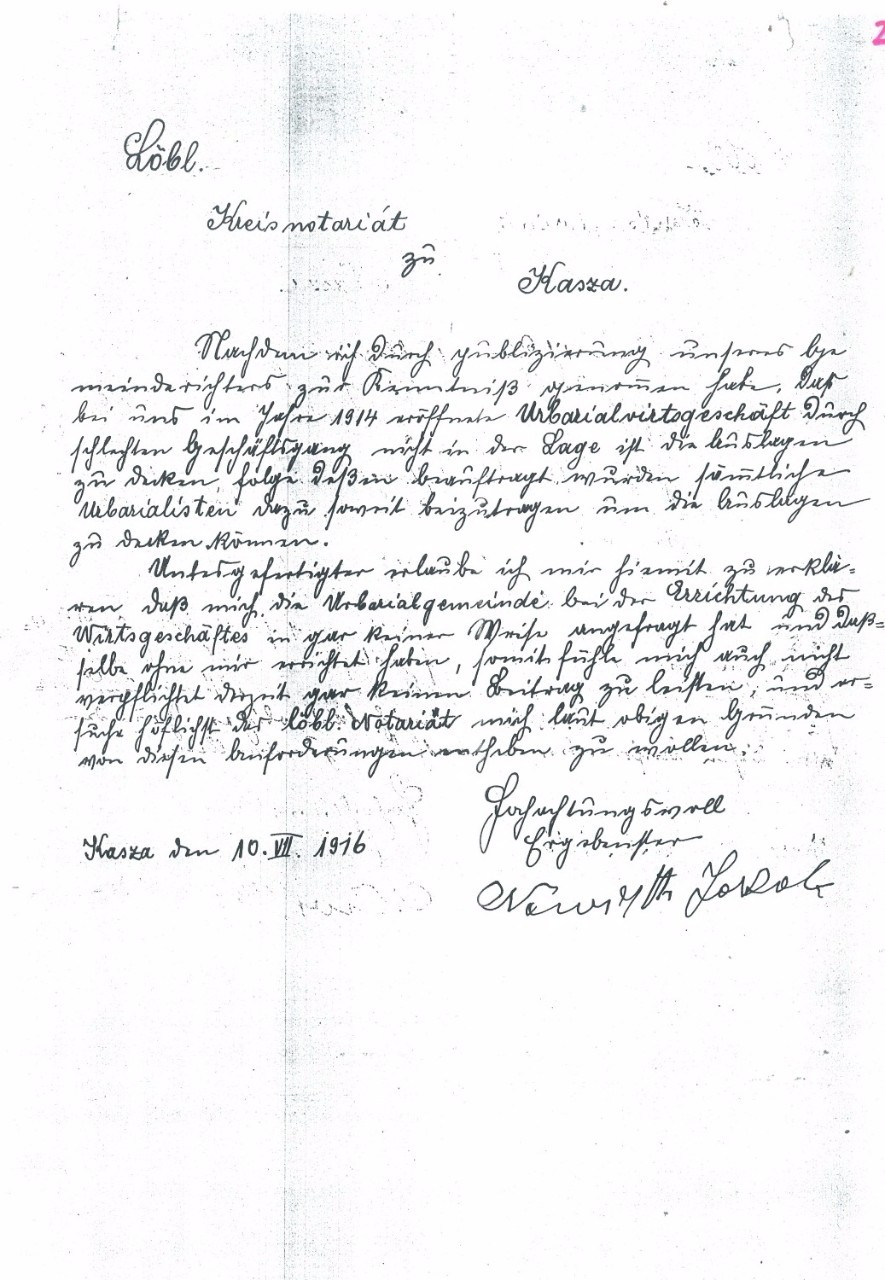 2
Löbl.
Kreisnotariát
zu
Kasza.
Nachdem ich durch publizierung unseres Ge
meinderichters zur Kenntniß genom̅en habe, daß
bei uns im Jahre 1914 eröffnete Urbarialvirtsgeschäft durch
schlechten Geschäftsgang nicht in der Lage ist die Auslagen
zu decken, folge deßen beauftragt wurden säm̅tliche
Urbarialisten dazu soweit beizutragen um die Auslagen
zu decken können.
Untesgefertigter erlaube ich mir hiemit zu erklä-
ren daß mich die Urbarialgemeinde bei der Errichtung des
Wirtsgeschäftes in gar keiner Weise angefragt hat und daß-
selbe ohne mir errichtet haben, somit fühle mich auch nicht
verpflichtet derzeit gar keinen Beitrag zu leisten, und er-
suche höflichst das löbl. Notariät mich laut obigen Gründen
von diesen Anforderungen entheben zu wollen.
Hochachtungsvoll
Ergebenster
Kasza den 10. VII. 1916
Jakob